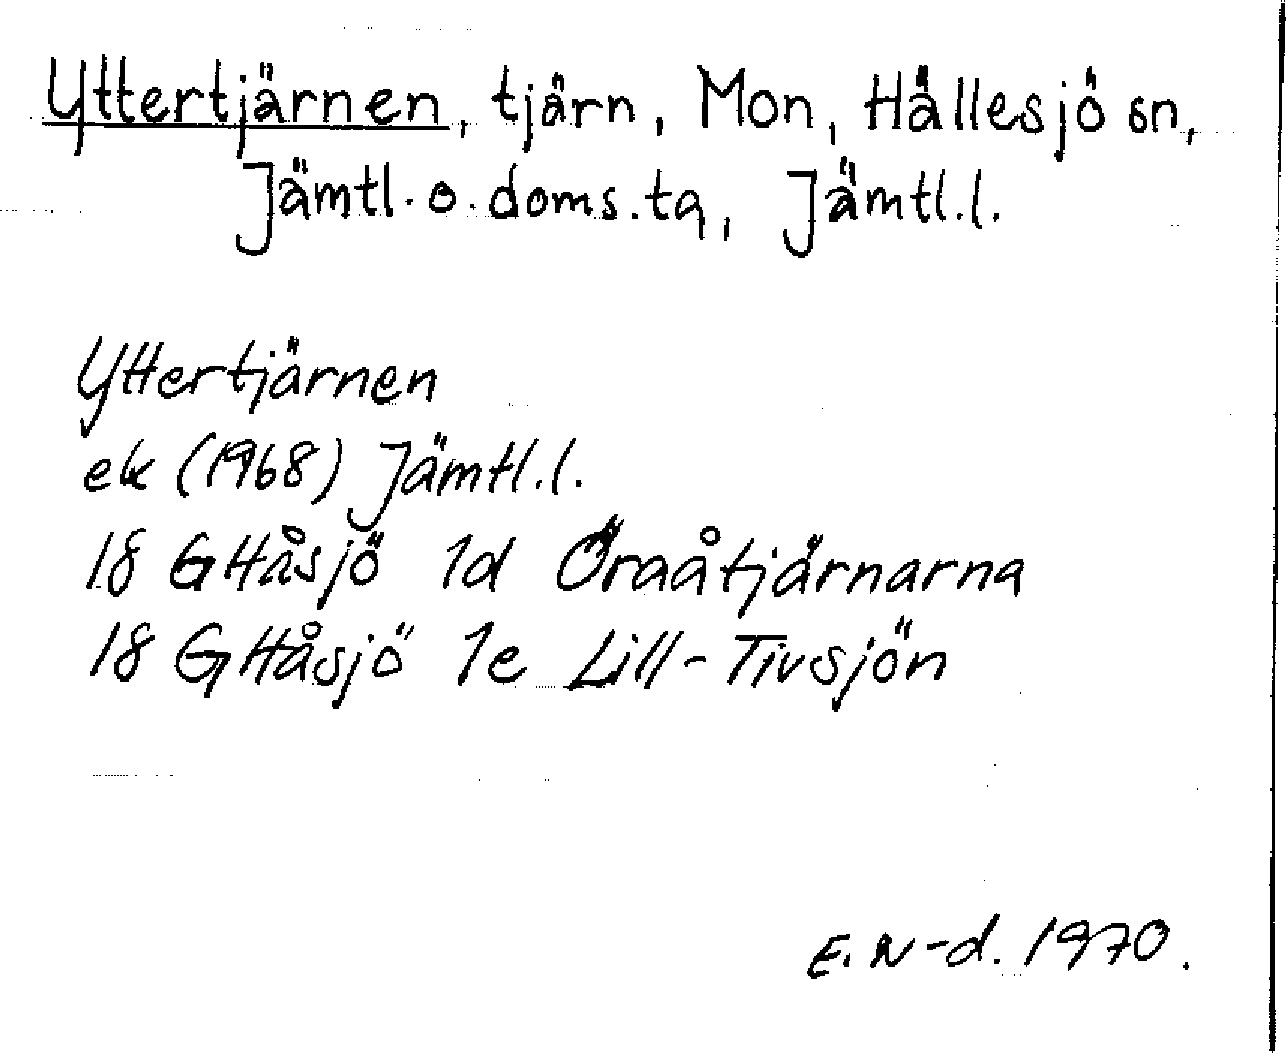 Yttertjärnen, tjärn, Mon, Hällesjö sn,
Jämtl. o. doms. tg, Jämtl. l.
Yttertjärnen
ek (1968) Jämtl. l.
18 G Håsjö 1d Öraåtjärnarna
18 G Håsjö 1e Lill-Tivsjön
E. N-d. 1970.